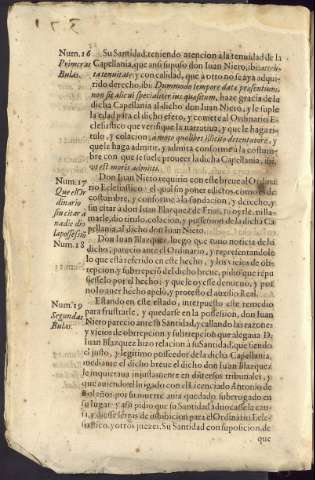 Num. 16 Su Santidad, teniendo atencion à la tenuidad de la
Primeras Capellania, que assi supuso don Iuan Nieto, ibi: atten-
Bulas. ta tenuitate: y con calidad, que à otro no se aya adqui-
rido derecho, ibi: Dummodo tempore datæ præsentium,
non sit alicui specialiter ius quæsitum, haze gracia de la
dicha Capellania al dicho don Iuan Nieto, y le suple
la edad para el dicho efeto, y comete al Ordinario E-
clesiastico que verifique la narratiua, y que le haga ti-
tulo, y colacion, amoto quolibet illicito detentatore, y
que le haga admitir, y admita conforme à la costum-
bre con que se suele proueer la dicha Capellania, ibi:
vt est moris admitti.
Num. 17 Don Iuan Nieto requirio con este breue al Ordina-
Que el Or rio Eclesiastico: el qual sin poner edictos, como es de
dinario costumbre, y conforme à la fundacion, y derecho, y
sin citar à sin citar à don Iuan Blazquez de Frias, ni oyrle, ni lla-
nadie dio marle, dio titulo, colacion, y possession de la dicha Ca-
la possession pellania, al dicho don Iuan Nieto.
Num. 18 Don Iuan Blazquez, luego que tuuo noticia de lo
dicho, parecio ante el Ordinario, y representandole
lo que està referido en este hecho, y los vicios de ob-
repcion, y subrepcion del dicho breue, pidio que repu-
siesse lo por el hecho, y que le oyesse de nueuo, y por
no lo auer hecho apelò, y protestò el auxilio Real.
Num. 19 Estando en este estado, interpuesto este remedio
Segundas para frustrarle, y quedarse en la possession, don Iuan
Bulas. Nieto parecio ante su Santidad, y callando las razones
y vicios de obrepcion, y subrepcion que alegaua D.
Iuan Blazquez hizo relacion à su Santidad, que siendo
el justo, y legitimo possedor de la dicha Capellania,
mediante el dicho breue el dicho don Iuan Blazquez
le inquietaua injustamente en diuersos tribunales, y
que auiendo litigado con el Licenciado Antonio de
Bolaños, por su muerte auia quedado subrogado en
su lugar y assi pidio que su Santidad auocasse la cau-
sa, y diesse letras de
clesiastico, y otros juezes. Su Santidad con suposicion, de
que